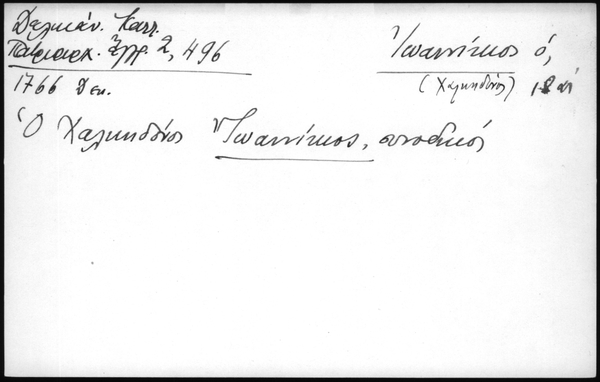 Δελικάν. Καλλ.
Πατριαρχ. Ἔγγρ. 2, 496
Ἰωαννίκιος ὁ,
(Χαλκηδόνος)
1766 Δεκ.
Ὁ Χαλκηδόνος Ἰωαννίκιος, συνοδικός